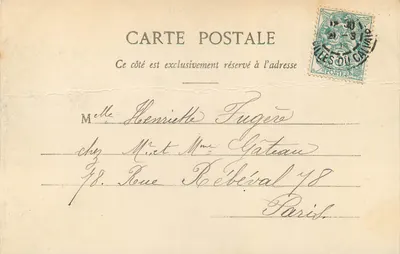 CARTE POSTALE
Ce côté est exclusivement réservé à l'adresse
Mlle Henriette Fugère
chez Mr et Mme Gateau
78. Rue Rébéval 78
Paris.